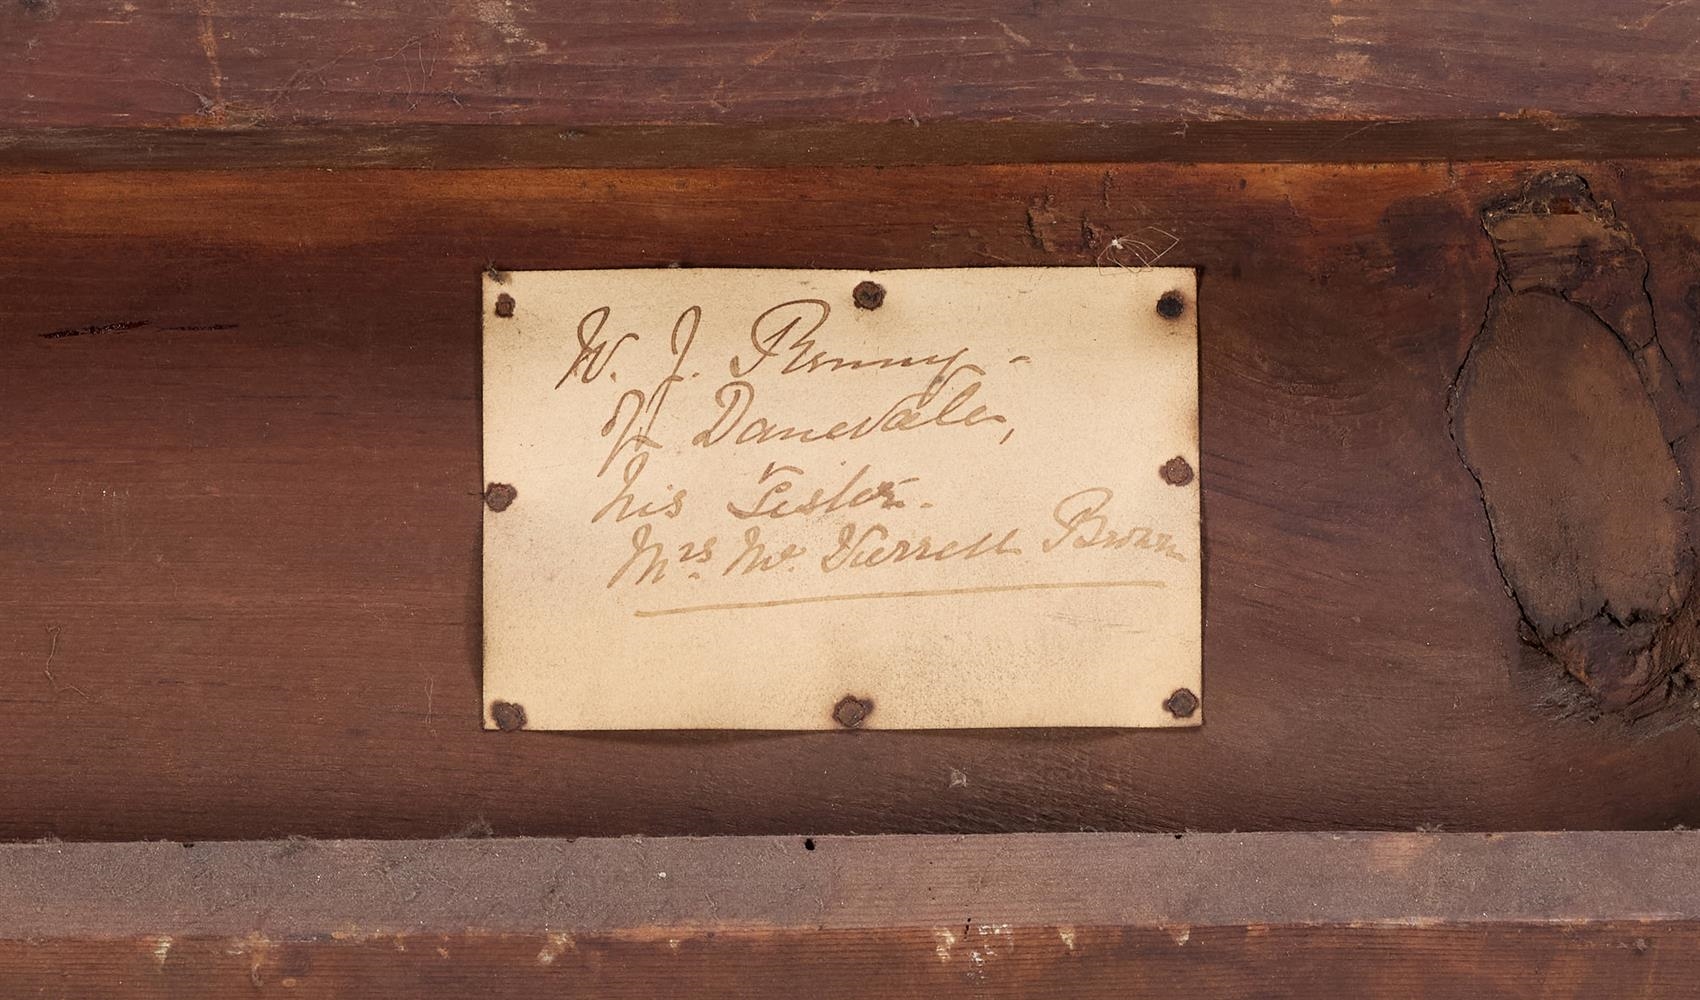 W. J. Penny -
of Danevale,
his Sister.
Mrs. W. Verrell Brown